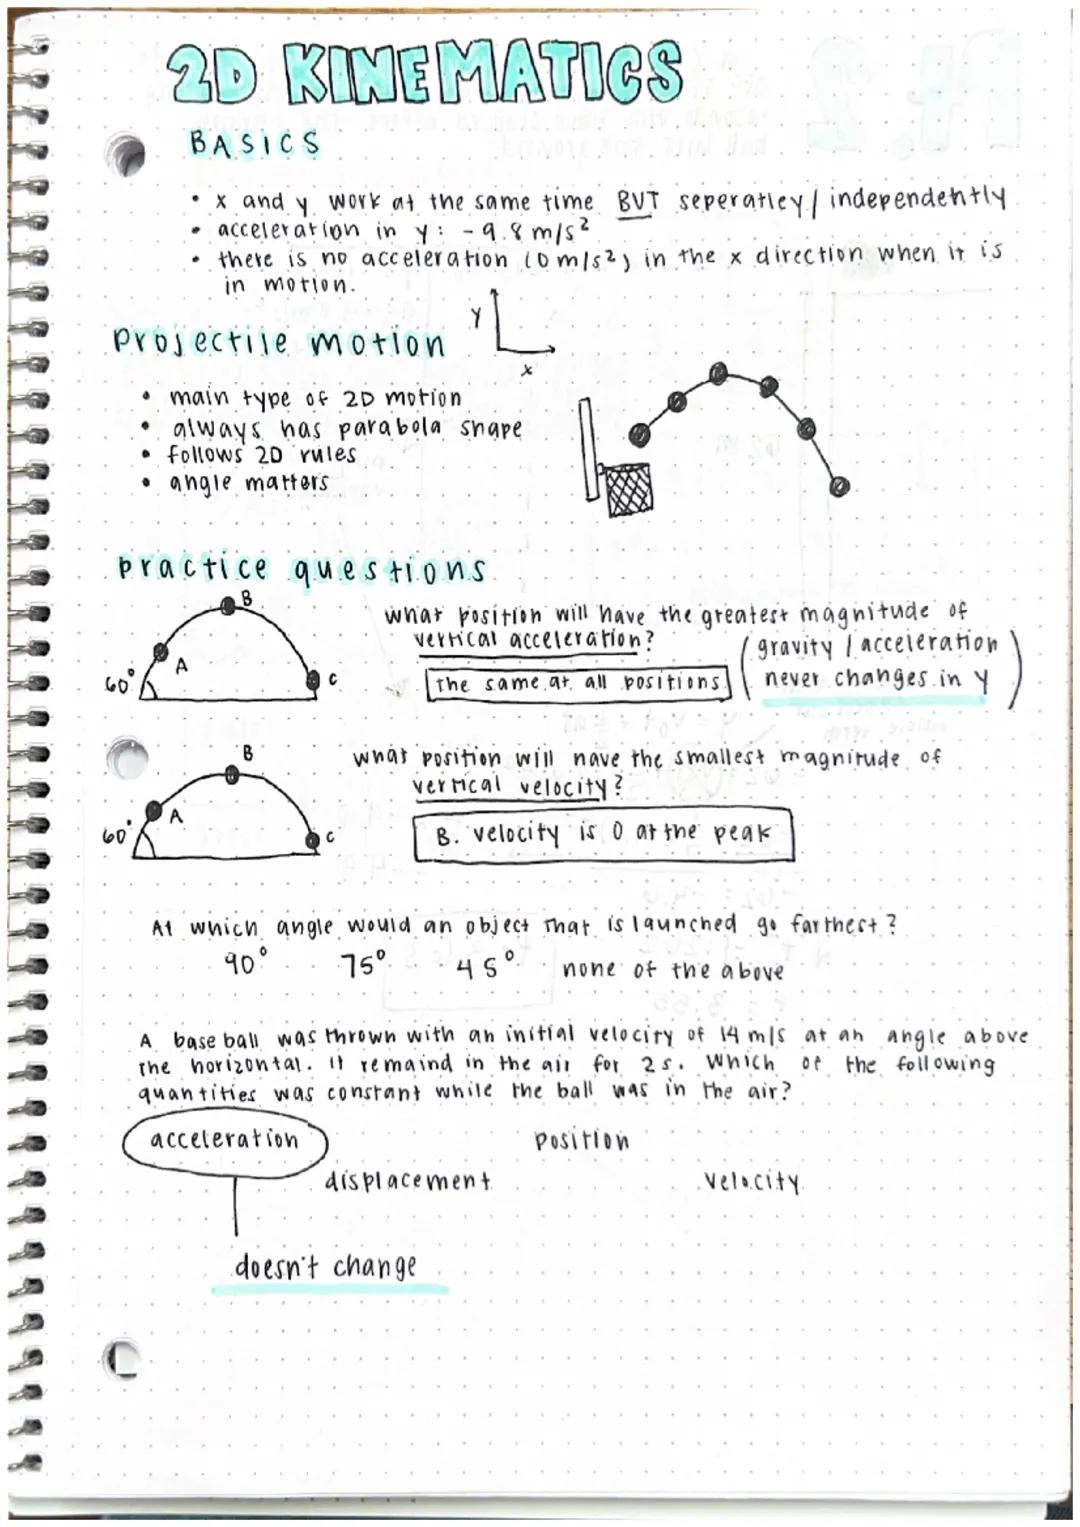 2D KINEMATICS
BASICS
• x and y work at the same time BUT seperatley / independently
• acceleration in y: -9.8 m/s²
• there is no acceleration (0 m/s²) in the x direction when it is
in motion.
projectile motion
y
x
• main type of 2D motion
• always has parabola shape
• follows 2D rules
• angle matters
practice questions
B
A
60°
C
what position will have the greatest magnitude of
vertical acceleration?
the same at all positions
(gravity / acceleration
never changes in y)
B
A
60°
C
what position will have the smallest magnitude of
vertical velocity?
B. velocity is 0 at the peak
At which angle would an object that is launched go farthest?
90° 75° 45° none of the above
A baseball was thrown with an initial velocity of 14 m/s at an angle above
the horizontal. It remaind in the air for 2s. Which of the following
quantities was constant while the ball was in the air?
acceleration
position
displacement
velocity
doesn't change